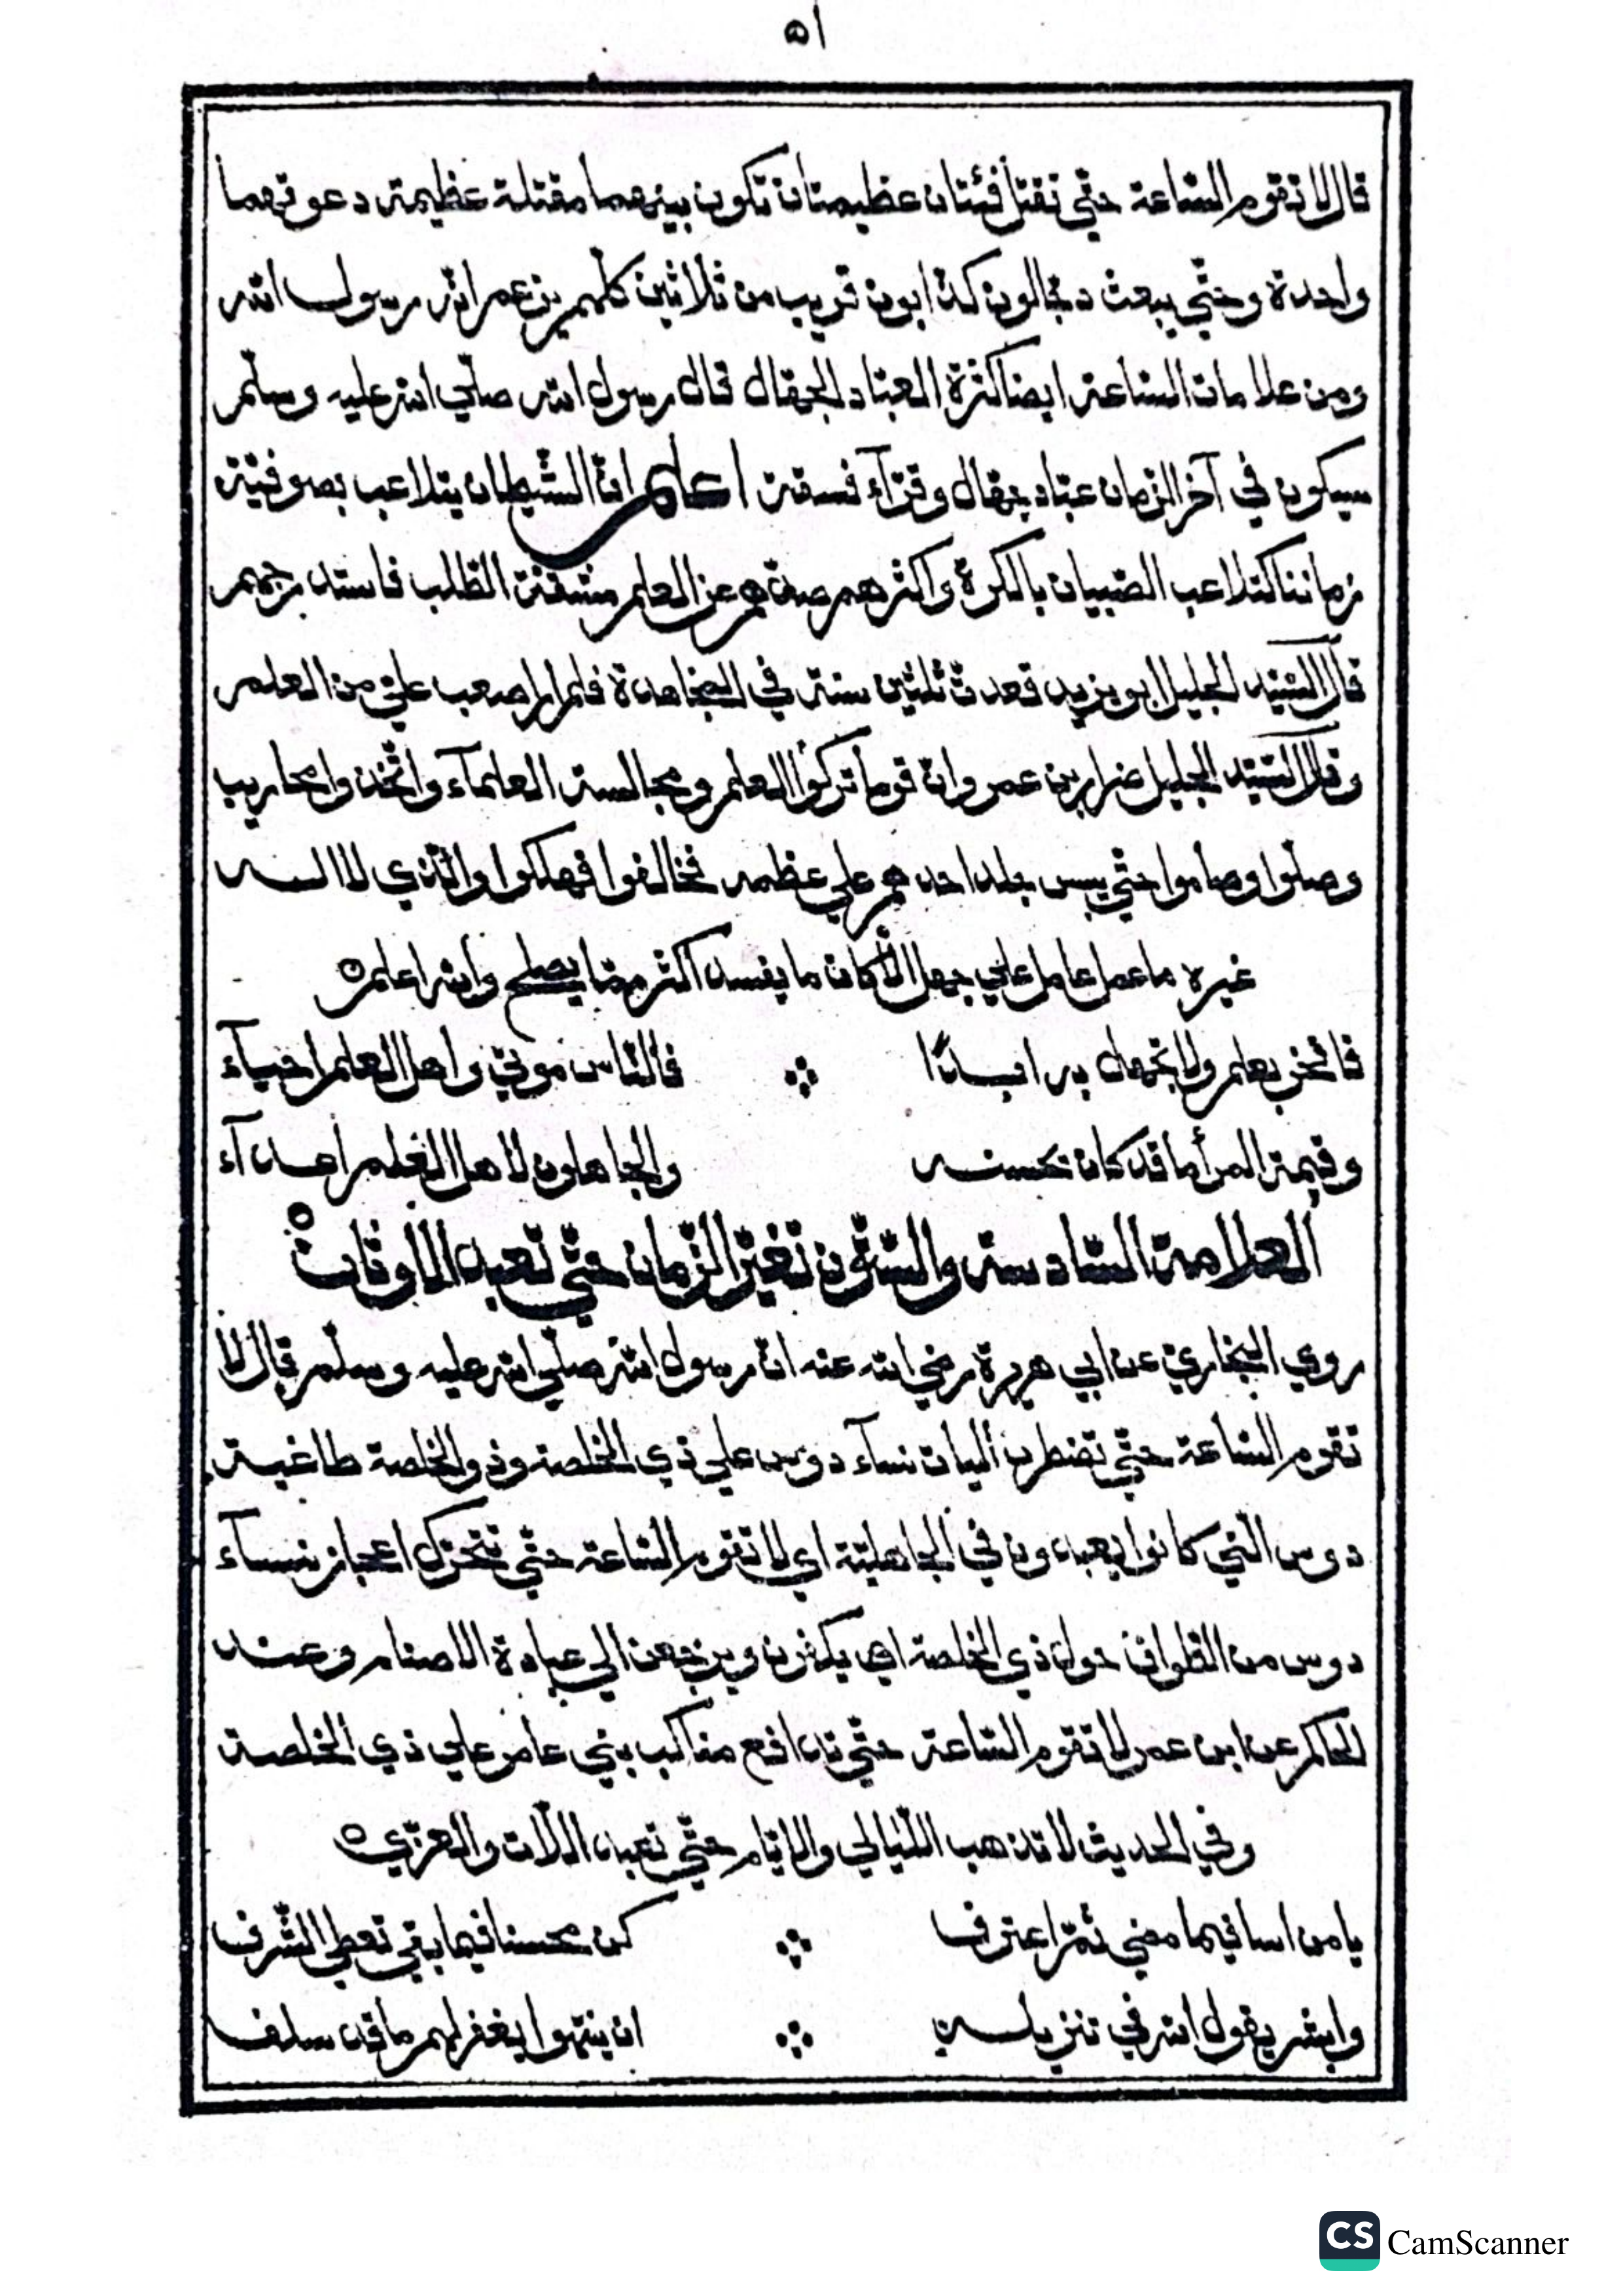 ٥١
قال لا تقوم الساعة حتي تقتل فئتان عظيمتان تكون بينهما مقتلة عظيمة دعوتهما
واحدة وحتّي يبعث دجّالون كذابون قريب من ثلاثين كلّهم يزعم انّه رسول الله
ومن علامات السّاعة ايضا كثرة العبّاد الجهّال قال رسول الله صلّي الله عليه وسلّم
سيكون في آخر الزمان عبّاد جهّال وقرّآء فسقة اعلم انّ الشّيطان يتلاعب بصوفيّة
زماننا كتلاعب الصّبيان بالكرة واكثرهم صدّهم عن العلم مشقّة الطّلب فاستدرجهم
قال السّيّد الجليل ابو يزيد قعدت ثلثين سنة في المجاهدة فلم ار اصعب عليّ من العلم
وقال السّيّد الجليل ضرار بن عمر وانّ قوما تركوا العلم ومجالسة العلمآء واتّخذوا محاريب
وصلّوا وصاموا حتّي يبس جلد احدهم علي عظمه فخالفوا فهلكوا والّذي لا اله
غيره ما عمل عامل علي جهل الّا كان ما يفسد اكثر ممّا يصلح والله اعلم ٥
فافخر بعلم ولا تجهل به ابدًا ∴ فالنّاس موتي واهل العلم احيآء
وقيمة المرأ ما قد كان يحسنه والجاهلون لاهل العلم اعدآء
العلامة السّادسة والستّون تغيّر الزّمان حتّي تعبد الاوثان ٥
روي البخاريّ عن ابي هريرة رضي الله عنه انّ رسول الله صلّي الله عليه وسلّم قال لا
تقوم الساعة حتّي تضطرب أليات نسآء دوس علي ذي الخلصة وذو الخلصة طاغية
دوس الّتي كانوا يعبدون في الجاهليّة اي لا تقوم الساعة حتّي تتحرّك اعجاز نسآء
دوس من الطّواف حول ذي الخلصة اي يكفرن ويرجعن الي عبادة الاصنام وعند
الحاكم عن ابن عمر لا تقوم السّاعة حتّي تدافع مناكب بني عامر علي ذي الخلصة
وفي الحديث لا تذهب اللّيالي والايّام حتّي تعبد اللّات والعزّي ٥
يا من اسا فيما مضي ثمّ اعترف ∴ كن محسنا فيما بقي تعطي الشّرف
وابشر بقول الله في تنزيله ∴ ان ينتهوا يغفر لهم ما قد سلف
CS CamScanner